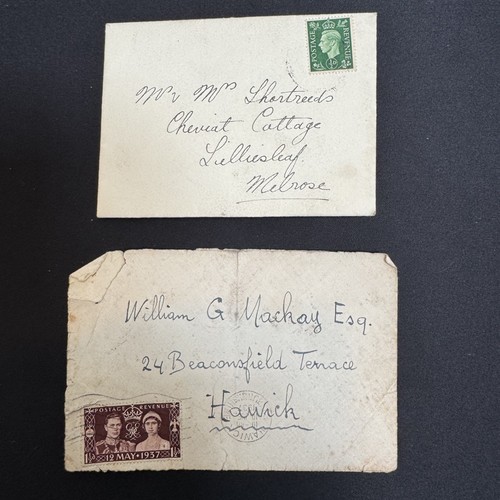 POSTAGE REVENUE
½D
Mr & Mrs Shortreeds
Cheviat Cottage
Lilliesleaf.
Melrose
William G Mackay Esq.
24 Beaconsfield Terrace
Hawick
HAWICK
POSTAGE REVENUE
1½D 12 MAY • 1937 1½D